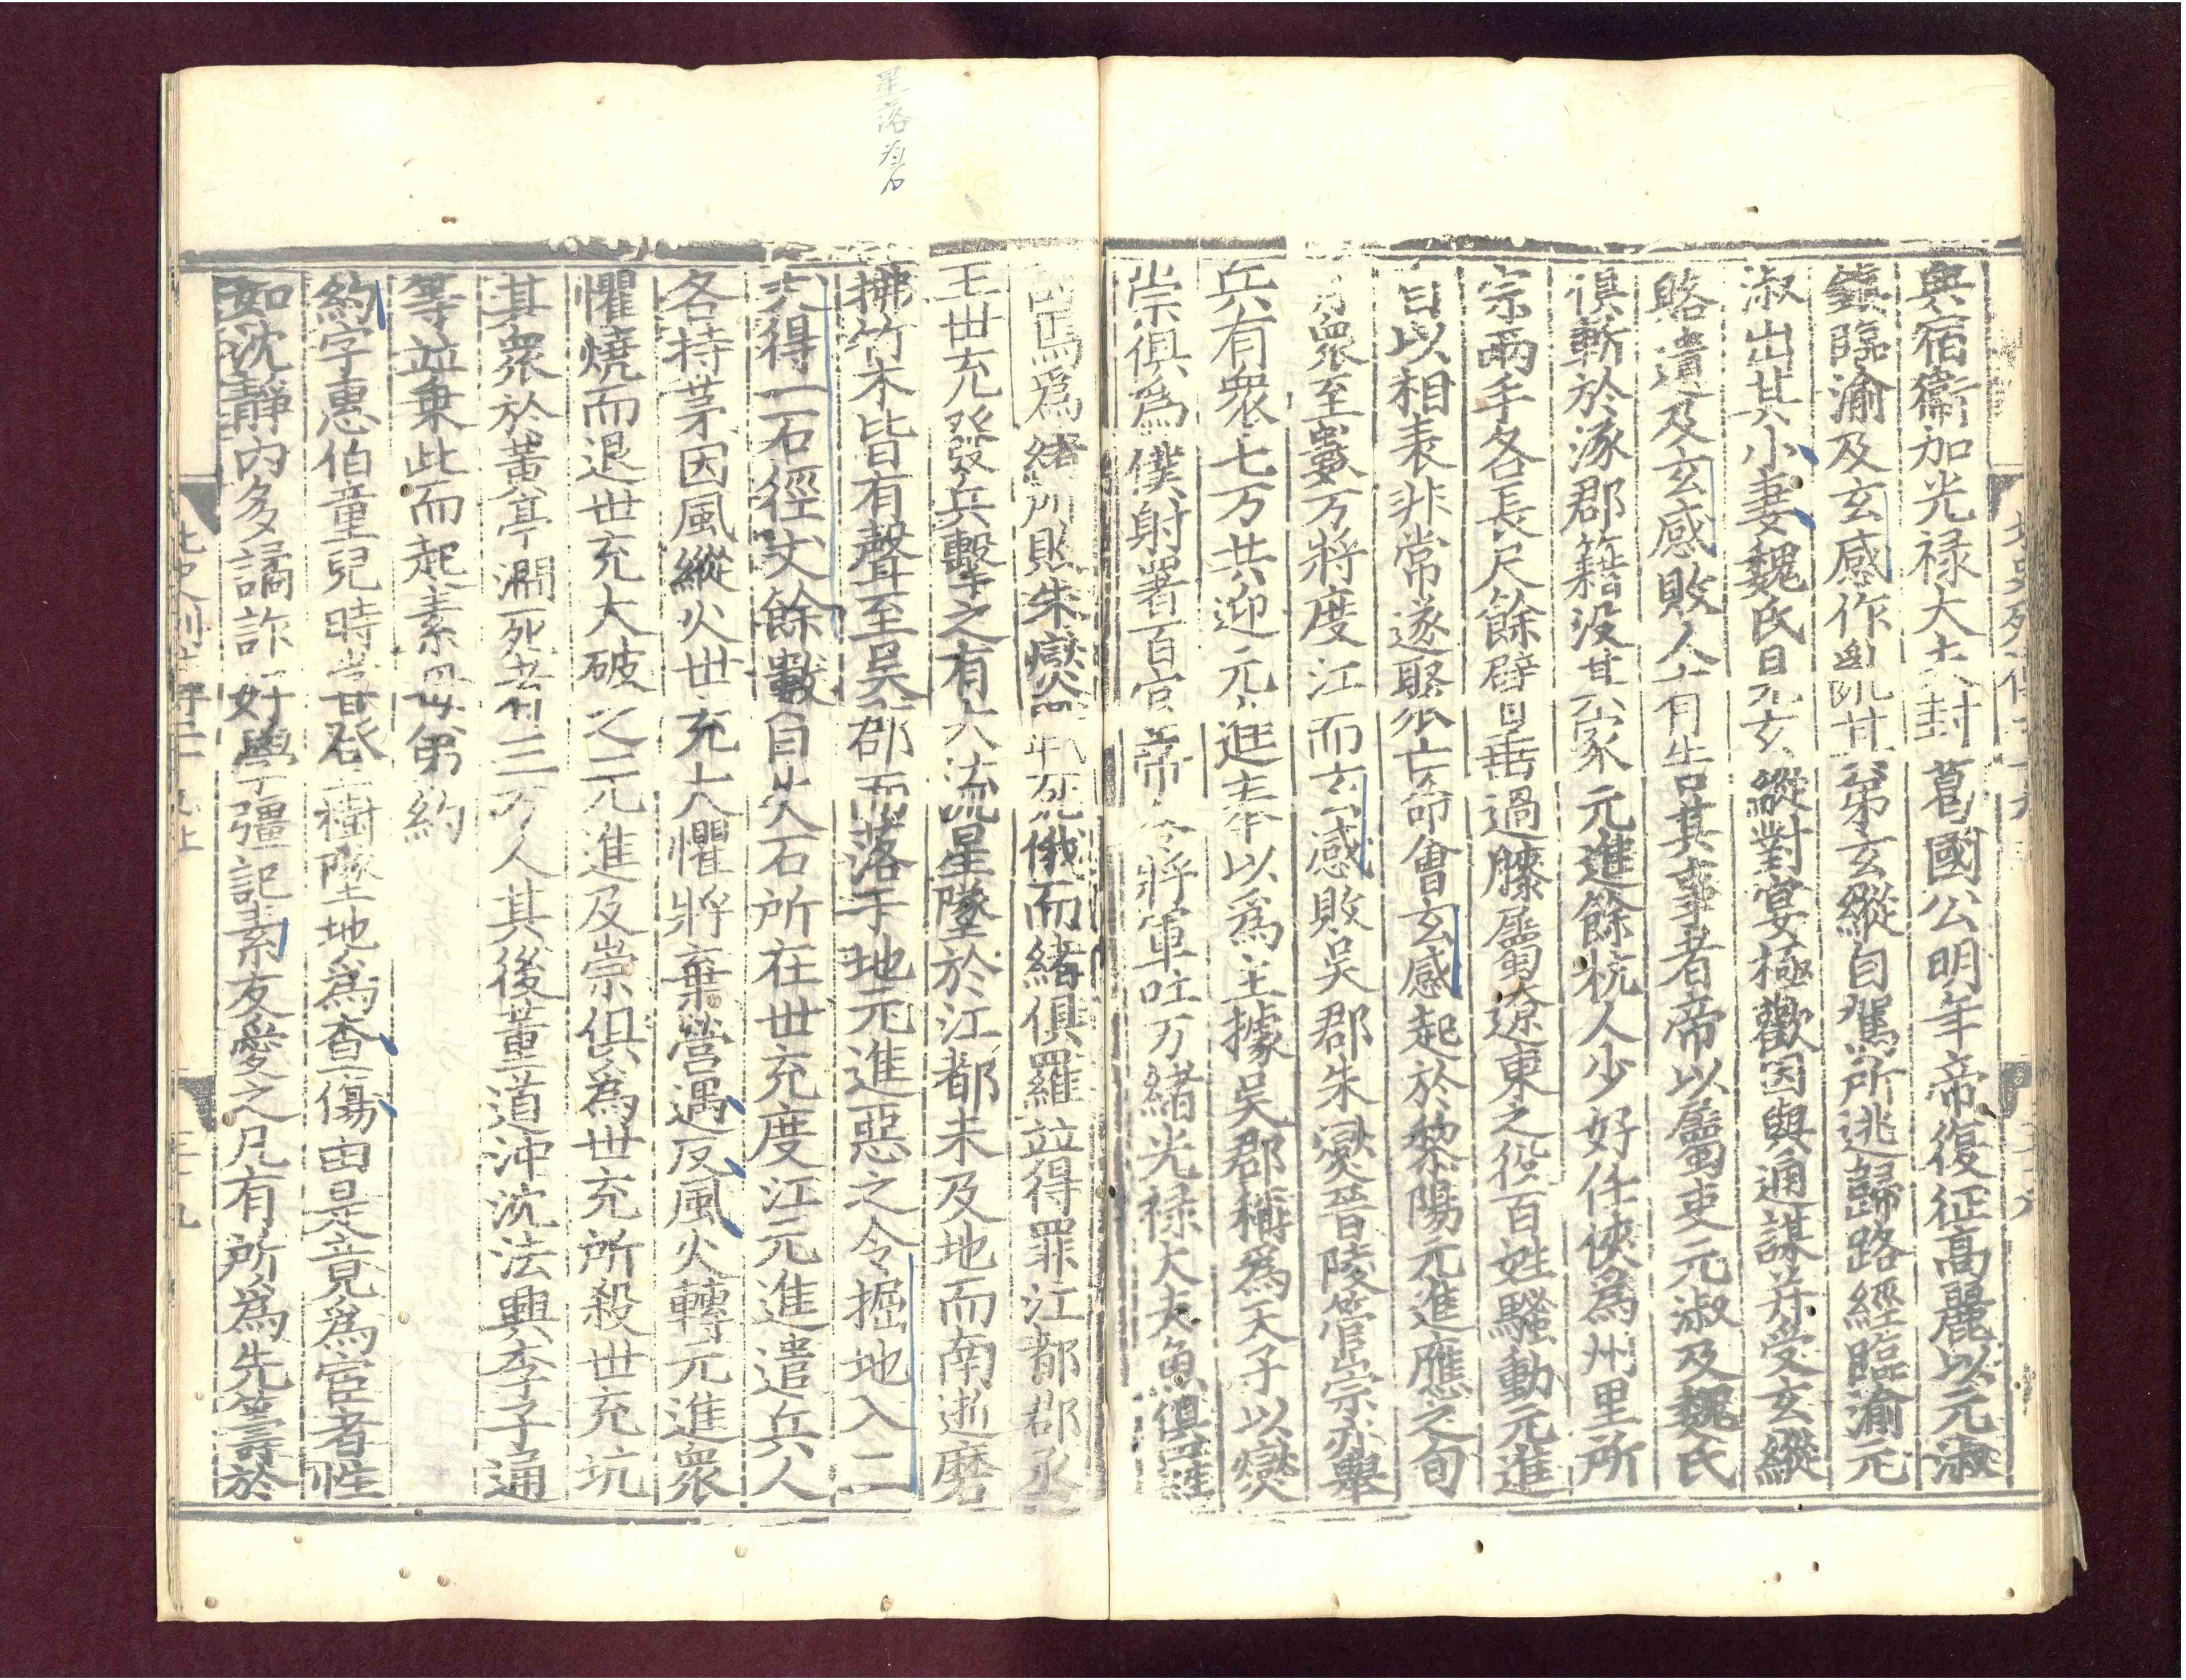 典宿衞加光禄大夫封葛國公明年帝復征髙麗以元淑
鎭臨渝及玄感作亂其弟玄縱自駕所逃歸路經臨渝元
淑出其小妻魏氏見玄縱對宴極歡因與通謀幷受玄縱
賂遺及玄感敗人有告其事者帝以屬吏元淑及魏氏
俱斬於涿郡籍没其家 元進餘杭人少好任俠爲州里所
宗兩手各長尺餘臂垂過膝屬遼東之役百姓騷動元進
自以相表非常遂聚亡命會玄感起於黎陽元進應之旬
月衆至數万將度江而玄感敗吳郡朱燮晉陵管崇亦舉
兵有衆七万共迎元進奉以爲主據吳郡稱爲天子以燮
崇俱爲僕射署百官帝令將軍吐万緒光禄大夫魚俱羅
爲緒所敗朱燮戰死俄而緒俱羅並得罪江都郡丞
王世充發兵擊之有大流星墜於江都未及地而南逝磨
拂竹木皆有聲至吳郡而落于地元進惡之令掘地入二
丈得一石徑丈餘數日失石所在世充度江元進遣兵人
各持茅因風縱火世充大懼將棄營遇反風火轉元進衆
懼燒而退世充大破之元進及崇俱爲世充所殺世充坑
其衆於黃亭澗死者三万人其後董道沖沈法興李子通
等並乗此而起素母弟約
約字惠伯童兒時嘗登樹墜地爲查傷由是竟爲宦者性
如沈靜内多譎詐好學彊記素友愛之凡有所爲先籌於
星落爲石